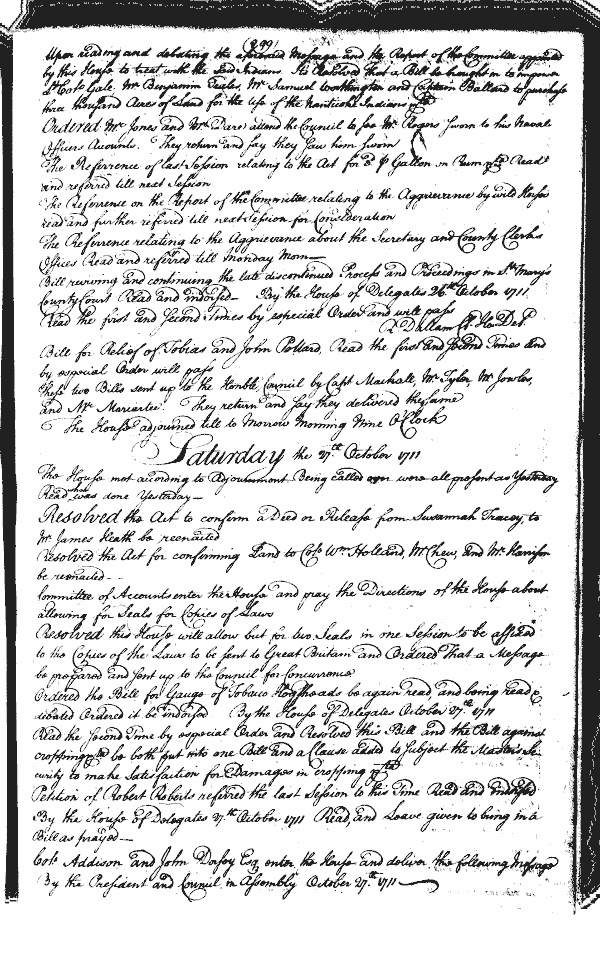 (299)
Upon reading and debating the aforesaid Message and the Report of the Committee appointed
by this House to treat with the said Indians. Its Resolved that a Bill be brought in to impower
Lt Colo Gale, Mr Benjamin Mr Samuel Worthington and Captain Ballard to purchase
three thousand Acres of Land for the use of the Nanticoke Indians
Ordered Mr Jones and Mr Dare attend the Council to see Mr Rogers sworn to his Naval
Officers Accounts. They return and say they saw him sworn
The Referrence of last Session relating to the Act for 3d P Gallon on Rum Read
and referred till next Session
The Reference on the Report of the Committee relating to the Aggrievance by wild Horses
read and further referred till next Session for Consideration
The Referrence relating to the Aggrievance about the Secretary and County Clerks
Offices Read and referred till Monday Morn
Bill reviving and continuing the late discontinued Process and Proceedings in St Mary's
County Court Read and indorsed By the House of Delegates 26th October 1711
Read the first and second Times by especial Order and will pass
R Dallam Cl. Ho. Del.
Bill for Relief of Tobias and John Pollard, Read the first and second Times and
by especial Order will pass
These two Bills sent up to the Honble Council by Capt Mackall, Mr Tyler, Mr Jowles,
and Mr Mariartee. They return and say they delivered the same
The House adjourned till to Morrow Morning Nine O'Clock
Saturday the 27th October 1711
The House met according to Adjournment Being called over were all present as Yesterday
Read what was done Yesterday
Resolved the Act to confirm a Deed or Release from Susannah Tracey, to
Mr James Heath be reenacted
Resolved the Act for confirming Land to Colo Wm Holland, Mr Chew, and Mr Harrison
be reenacted--
Committee of Accounts enter the House and pray the Directions of the House about
allowing for Seals for Copies of Laws
Resolved this House will allow but for two Seals in one Session to be affixed
to the Copies of the Laws to be sent to Great Britain and Ordered That a Message
be prepared and sent up to the Council for Concurrence
Ordered the Bill for Gauge of Tobacco Hogsheads be again read, and being read &
debated Ordered it be indorsed By the House of Delegates October 27th 1711
Read the second Time by especial Order and Resolved this Bill and the Bill against
cropping be both put into one Bill and a Clause added to subject the Masters Se-
curity to make Satisfaction for Damages in cropping
Petition of Robert Roberts referred the last Session to this Time Read and indorsed
By the House of Delegates 27th October 1711 Read, and Leave given to bring in a
Bill as prayed
Colo Addison and John Dorsey Esq enter the House and deliver the following Message
By the President and Council in Assembly October 27th 1711